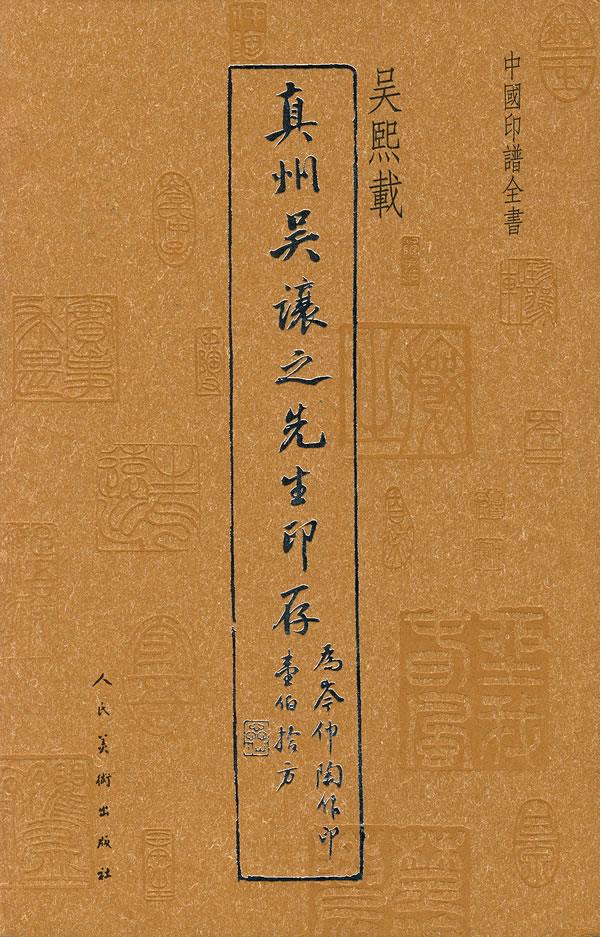 中國印譜全書
吴熙載
真州吴讓之先生印存
為岑仲陶作印
壹伯拾方
人民美術出版社